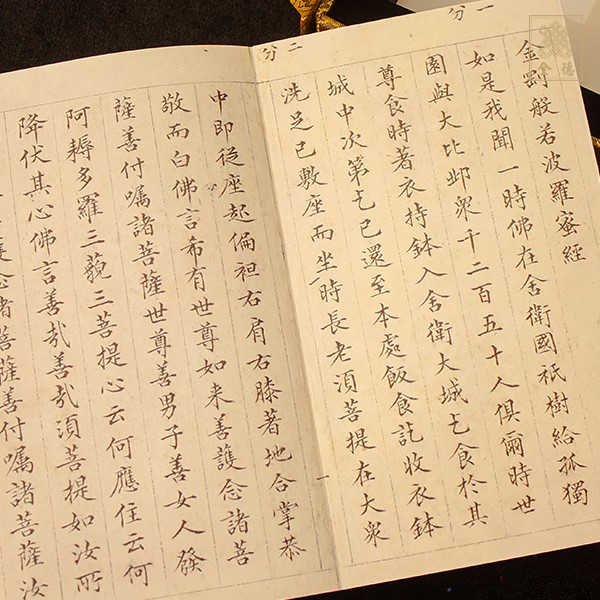 一分
金剛般若波羅蜜經
如是我聞一時佛在舍衛國祇樹給孤獨
園與大比邱衆千二百五十人俱爾時世
尊食時著衣持鉢入舍衛大城乞食於其
城中次第乞已還至本處飯食訖收衣鉢
洗足已敷座而坐時長老須菩提在大衆
二分
一
中即從座起偏袒右肩右膝著地合掌恭
敬而白佛言希有世尊如来善護念諸菩
薩善付囑諸菩薩世尊善男子善女人發
阿耨多羅三藐三菩提心云何應住云何
降伏其心佛言善哉善哉須菩提如汝所
護念諸菩薩善付囑諸菩薩汝